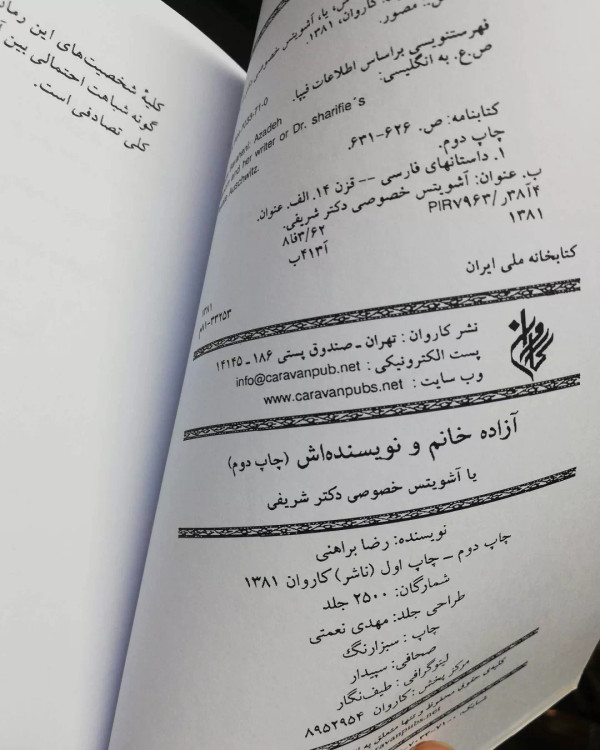 کلیهٔ شخصیت‌های این رمان
گونه شباهت احتمالی بین
کلی تصادفی است.
یا، آشویتس خصوصی
کاروان، ۱۳۸۱.
مصور.
فهرستنویسی براساس اطلاعات فیپا.
ص.ع. به انگلیسی:
Azadeh
and her writer or Dr. sharifie´s
Auschwitz.
کتابنامه: ص. ۶۲۶-۶۳۱.
چاپ دوم.
۱. داستانهای فارسی -- قرن ۱۴. الف. عنوان.
ب. عنوان: آشویتس خصوصی دکتر شریفی.
۴آ۳۸ر/PIR۷۹۶۳ ۸فا۳/۶۲
۱۳۸۱ آ۴۱۳ب
کتابخانه ملی ایران
۱۳۸۱
۳۳۲۵۳-۸۱م
نشر کاروان: تهران ـ صندوق پستی ۱۸۶ ـ ۱۴۱۴۵
پست الکترونیکی: info@caravanpub.net
وب سایت: www.caravanpubs.net
کاروان
آزاده خانم و نویسنده‌اش (چاپ دوم)
یا آشویتس خصوصی دکتر شریفی
نویسنده: رضا براهنی
چاپ دوم ـ چاپ اول (ناشر) کاروان ۱۳۸۱
شمارگان: ۲۵۰۰ جلد
طراحی جلد: مهدی نعمتی
چاپ: سبزارنگ
صحافی: سپیدار
لیتوگرافی: طیف‌نگار
مرکز پخش: کاروان ۸۹۵۲۹۵۴
کلیهٔ حقوق محفوظ و تنها متعلق به